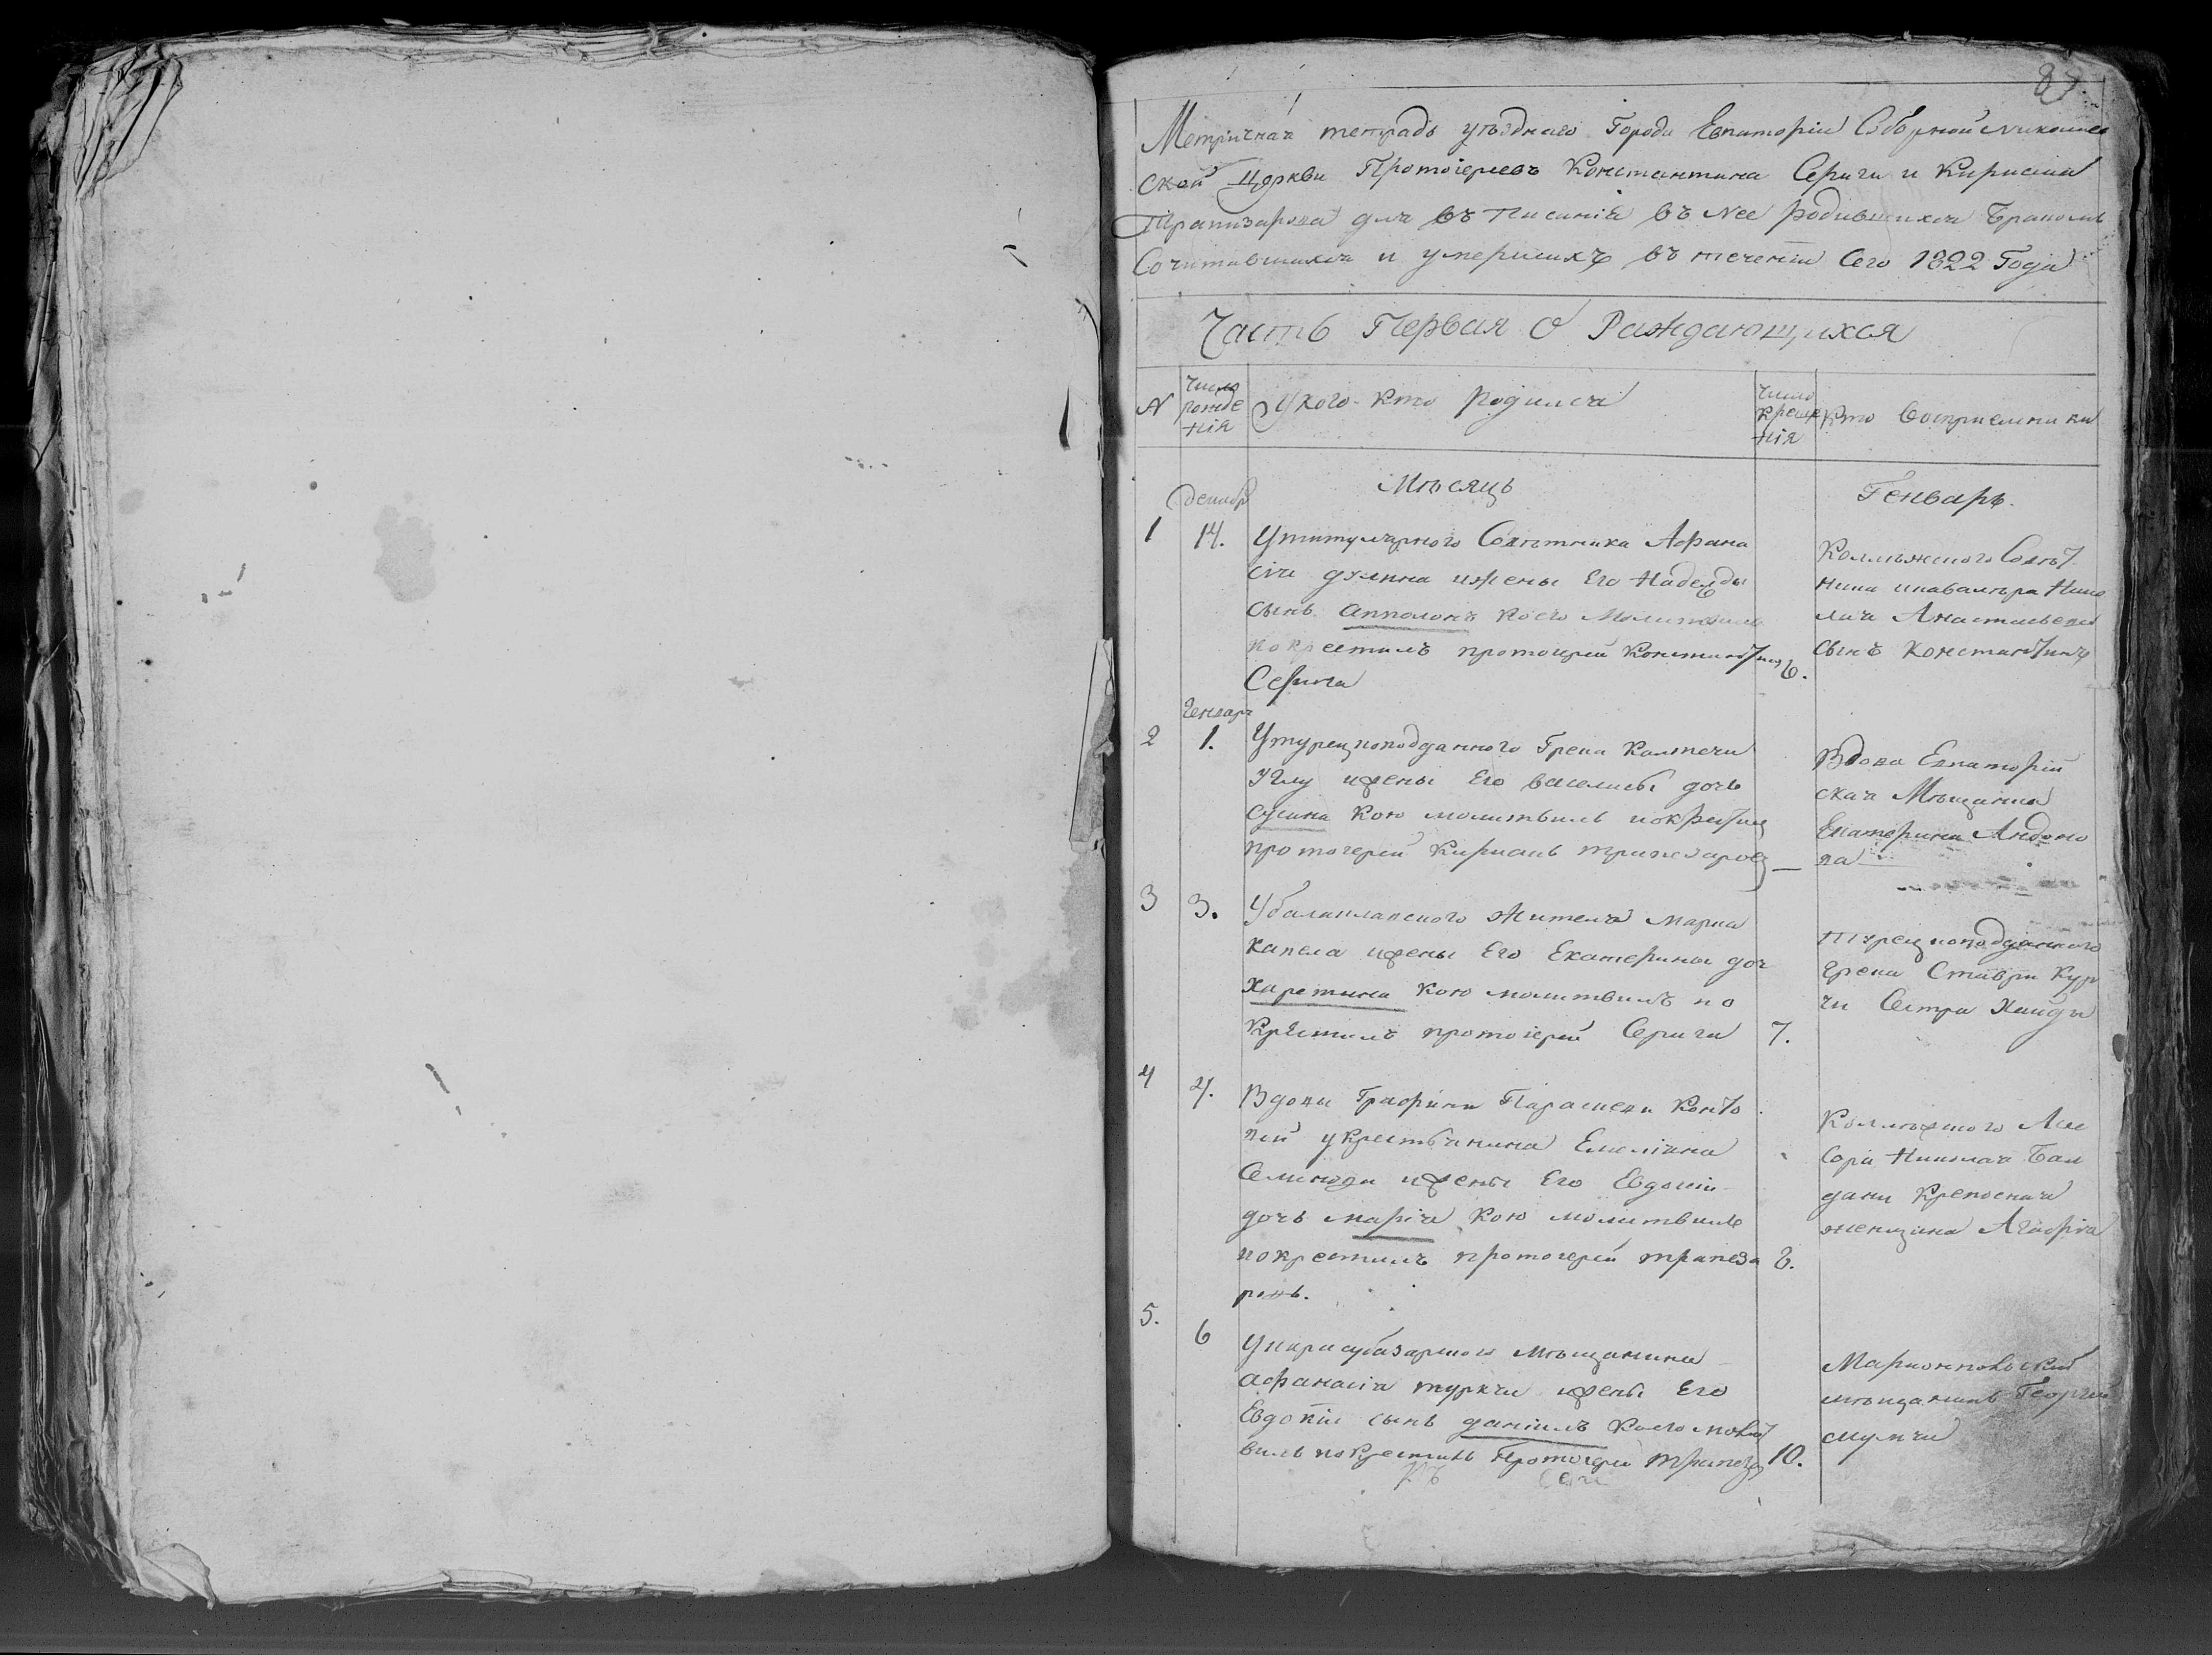 87.
Метричная тетрадь уѣзднаго Города Евпаторіи Соборной Николаев
ской Церкви Протоіереевъ Константина Сериги и Кириака
Трапизарова для въ писанія въ Nее родившихся бракомъ
Сочитавшихся и умершихъ въ теченіи Сего 1822 Года
Часть Первая О Раждающихся
N
Число рожде нія
У кого кто родился
Число креще нія
Кто восприемники
Мѣсяцъ
Генварь.
декабр
1
14.
У титулярного Совѣтника Афана
сія ижены Его Надежды
сынъ Апполонъ коего молитвилъ
покрестилъ протоіерей Константинъ
Серига
6.
Коллѣжского Совѣт
ника икавалера Нико
лая
сынъ Константинъ
генвар
2
1.
У турецкоподданного Грека
углу ижены Его василики дочь
кою молитвилъ покрестилъ
протоіерей Кириакъ трапезаровъ
—
Вдова Евпаторій
ская Мѣщанка
Екатерина Андоно
ва
3
3.
У балаклавского жителя марка
капела ижены Его Екатерины доч
Харетина кою молитвилъ по
крестилъ протоіерей Серига
7.
турецкоподданного
грека Ставри Кур
чи Сестра
4
4.
Вдовы Графини Параскеви
у крестьянина Емеліана
ижены Его Евдокіи
дочь марія кою молитвилъ
покрестилъ протоіерей трапеза
ровъ.
8.
Коллѣжского Асе
сора Николая Бал
дани крепосная
женщина Агафія
5.
6
У карасубазарского мѣщанина
афанасія туркчи ижены Его
Евдокіи сынъ даніилъ коего молит
вилъ покрестилъ Протоіерей трапеза
10.
Маріонпольский
мѣщанинъ Георгий